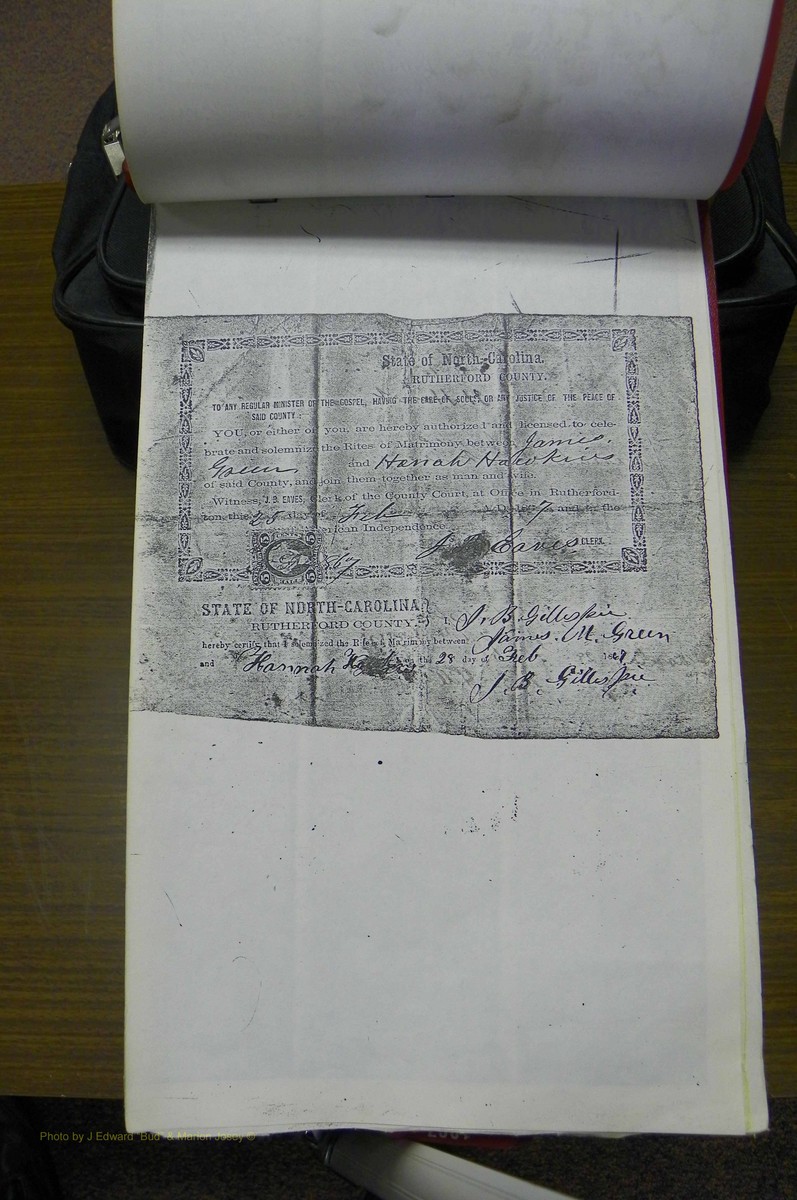 State of North-Carolina.
RUTHERFORD COUNTY.
TO ANY REGULAR MINISTER OF THE GOSPEL, HAVING THE CARE OF SOULS, OR ANY JUSTICE OF THE PEACE OF
SAID COUNTY:
YOU, or either of you, are hereby authorized and licensed to cele-
brate and solemnize the Rites of Matrimony between James
Green and Hanah Hawkins
of said County, and join them together as man and wife.
Witness, J. B. EAVES, Clerk of the County Court, at Office in Rutherford-
ton, this 25 day of Feb A. D. 7 and in the
American Independence
J B Eaves CLERK.
867
STATE OF NORTH-CAROLINA,
RUTHERFORD COUNTY. I, J. B. Gillespie
hereby certify that I solemnized the Rites of Matrimony between James. M. Green
and Hannah on the 28 day of Feb 1867
J. B. Gillespie
Photo by J Edward "Bud" & Marion Josey ©